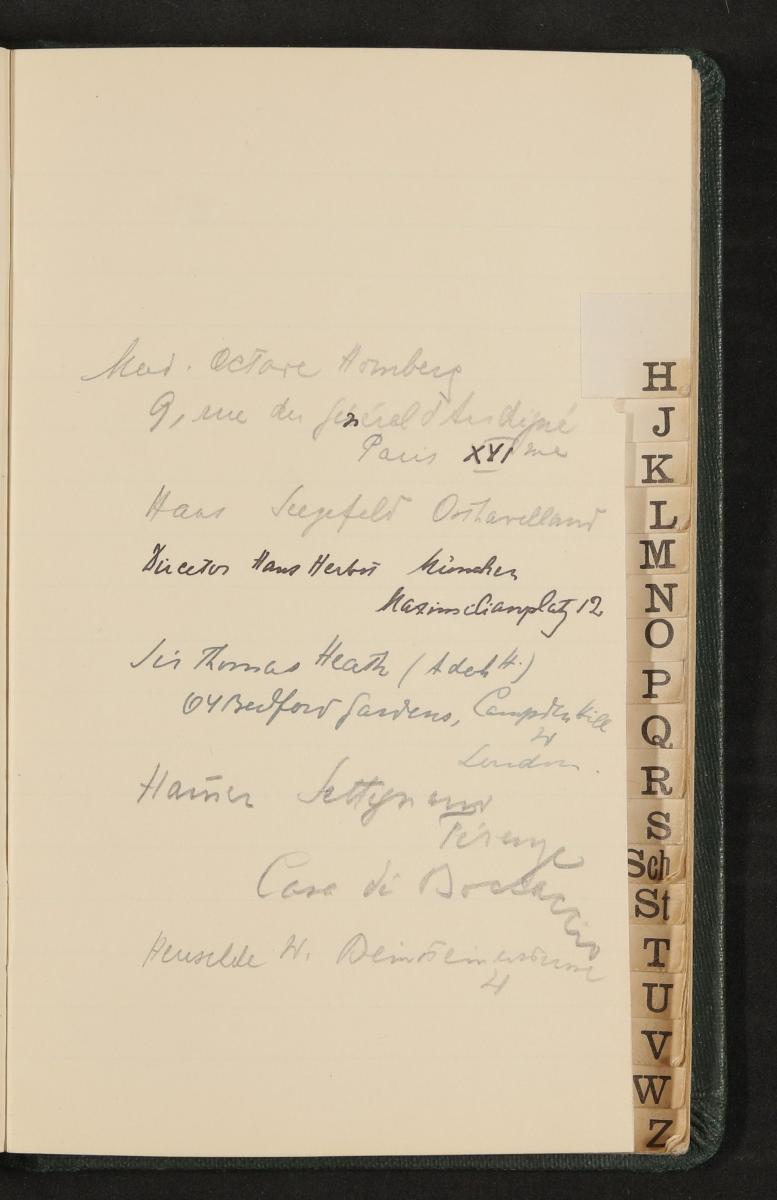 Mad. Octave Homberg
9, rue du Général d'Andigné
Paris XVI me
Haas Seegefeld Osthavelland
Director Hans Herbst München
Maximilianplatz 12
Sir Thomas Heath (Adeh H.)
64 Bedford Gardens, Campden Hill
W
London.
Settignano
Firenze
Casa di Boccaccio
W.
4
H
J
K
L
M
N
O
P
Q
R
S
Sch
St
T
U
V
W
Z